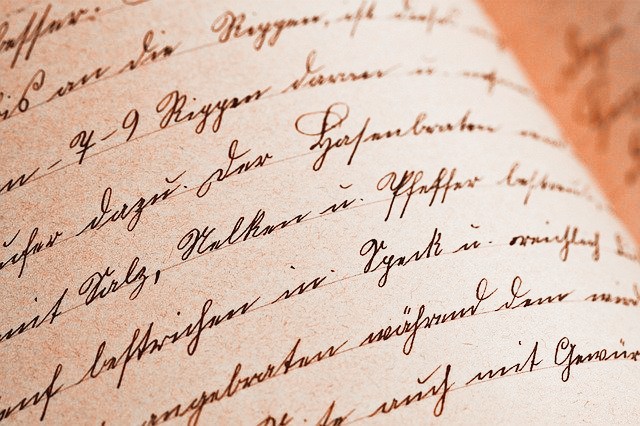 besser.
bis an die Rippen, ist dieses
7-9 Rippen daran u.
dazu. Der Hasenbraten
mit Salz, Nelken u. Pfeffer bestreu
bestrichen in Speck u. reichlich
angebraten während dem wird
auch mit Gewür